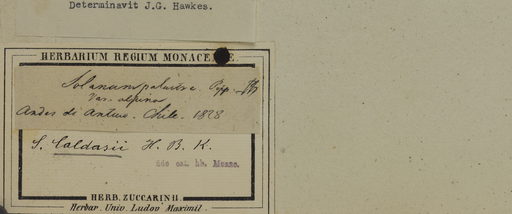 Determinavit J.G. Hawkes.
HERBARIUM REGIUM MONACENSE.
Solanum palustre. Pöpp.
Var. alpina
Andes di Antuco. Chile. 1828
S. Caldasii H. B. K.
fide cat. hb. Monac.
HERB. ZUCCARINII.
Herbar. Univ. Ludov. Maximil.